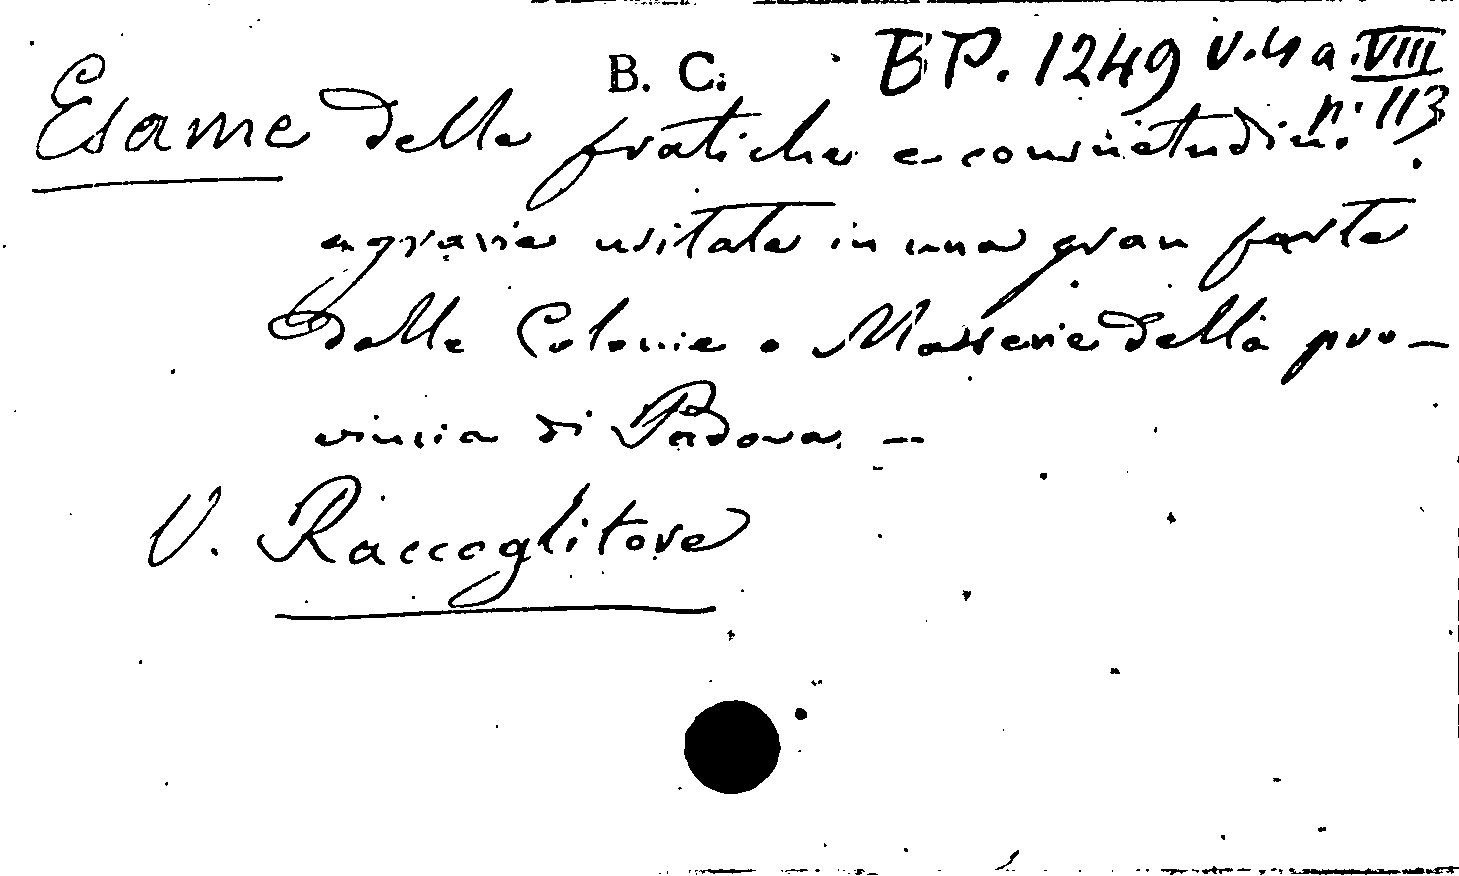 B. C. BP. 1249 v. 4 a. VIII
n. 113
Esame delle pratiche e consuetudini
agrarie usitate in una gran parte
delle Colonie o Masserie della pro-
vincia di Padova. -
V. Raccoglitore